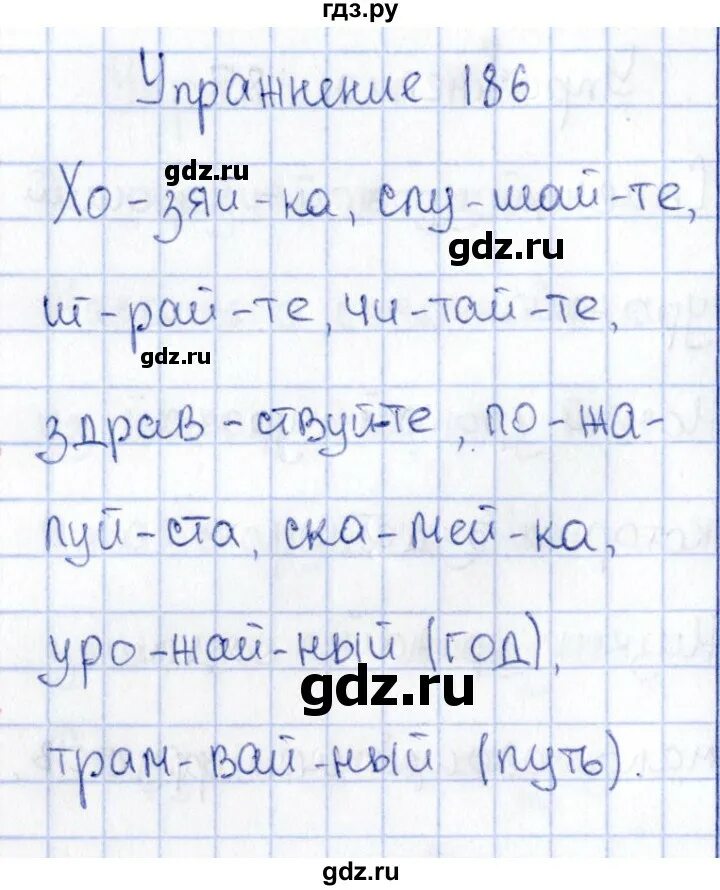 гдз.ру
Упражнение 186
gdz.ru
Хо-зяй-ка, слу-шай-те,
gdz.ru
иг-рай-те, чи-тай-те,
gdz.ru
здрав-ствуй-те, по-жа-
луй-ста, ска-мей-ка,
уро-жай-ный (год),
gdz.ru
трам-вай-ный (путь).
gdz.ru